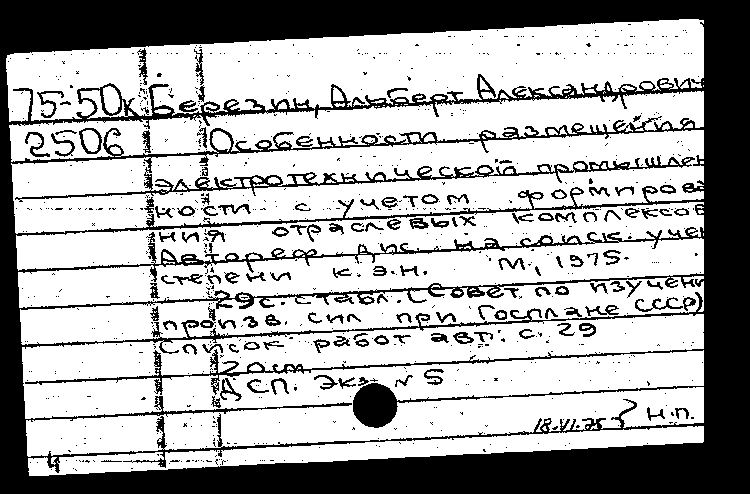 75-50к Березин, Альберт Александрович
2506 Особенности размещения
электротехнической промышлен
ности с учетом формирова
ния отраслевых комплексов
Автореф. дис. на соиск. учен
степени к.э.н. М., 1975.
29с. с табл. (Совет по изучени
произв. сил при Госплане СССР)
Список работ авт: с. 29
20см
ДСП. Экз. № 5
18.VI.75 Н.П.
4